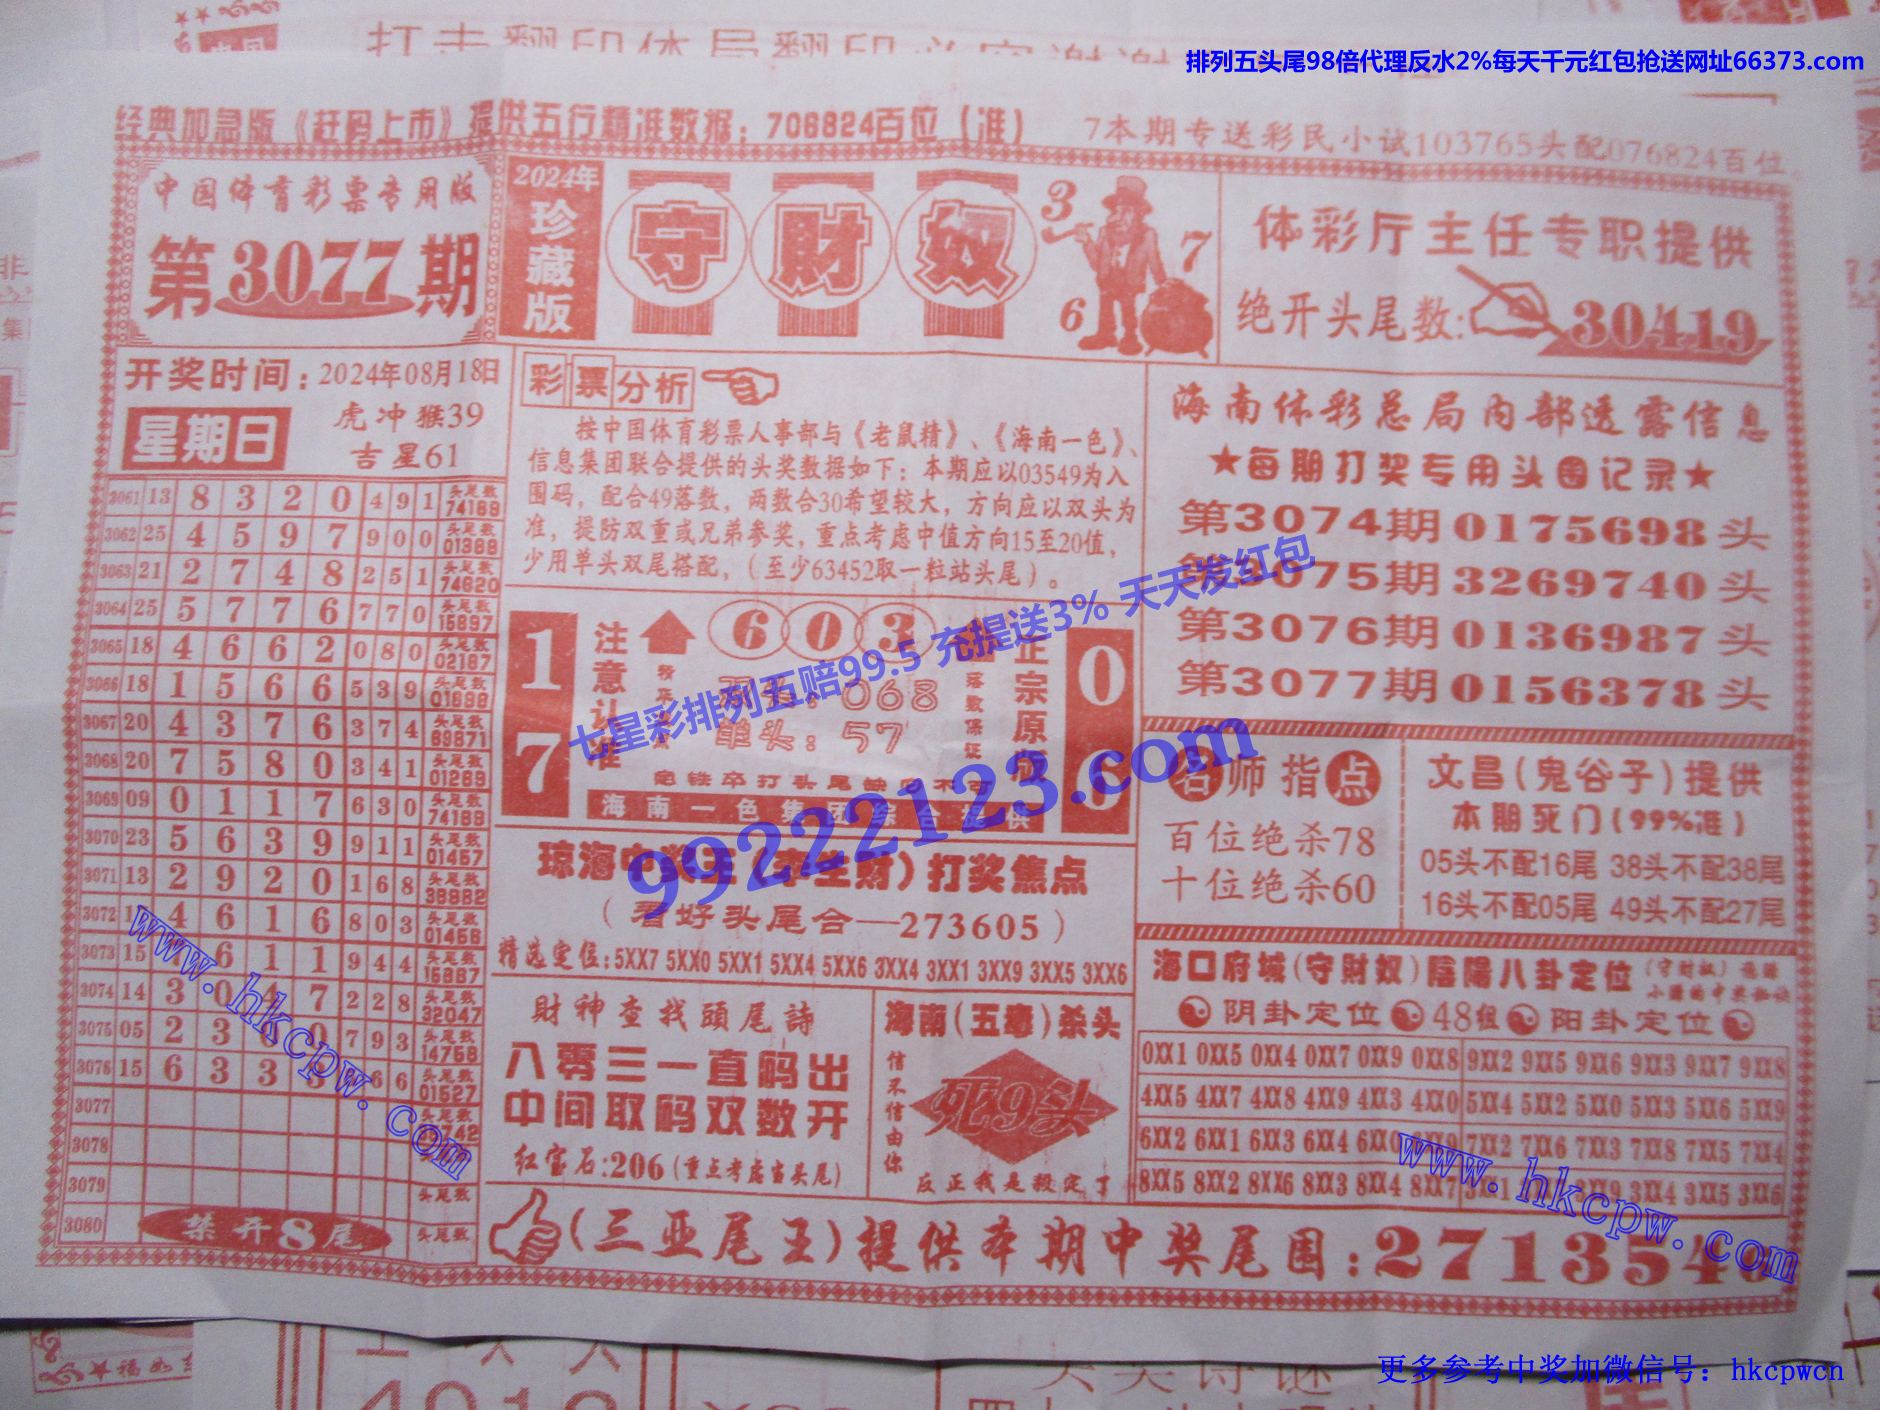 排列五头尾98倍代理反水2%每天千元红包抢送网址66373.com
经典加急版《赶码上市》提供五行精准数据：706824百位（准）
7本期专送彩民小试103765头配076824百位。
中国体育彩票专用版
第3077期
2024年
珍藏版
守財奴
3
7
6
体彩厅主任专职提供
绝开头尾数:30419
开奖时间：2024年08月18日
星期日
虎冲猴39
吉星61
3061 13 8 3 2 0 4 9 1 头尾数 74169
3062 25 4 5 9 7 9 0 0 头尾数 01368
3063 21 2 7 4 8 2 5 1 头尾数 74620
3064 25 5 7 7 6 7 7 0 头尾数 15897
3065 18 4 6 6 2 0 8 0 头尾数 02187
3066 18 1 5 6 6 5 3 9 头尾数
3067 20 4 3 7 6 3 7 4 头尾数 69871
3068 20 7 5 8 0 3 4 1 头尾数 01269
3069 09 0 1 1 7 6 3 0 头尾数 74169
3070 23 5 6 3 9 9 1 1 头尾数 01457
3071 13 2 9 2 0 1 6 8 头尾数
3072 4 6 1 6 8 0 3 头尾数
3073 15 6 1 1 9 4 4 头尾数
3074 14 3 0 4 7 2 2 8 头尾数 32047
3075 05 2 3 0 7 9 3 头尾数 14758
3076 15 6 3 3 6 6 头尾数 01527
3077 头尾数
3078
3079 头尾数
3080 禁开8尾 头尾数
彩票分析
按中国体育彩票人事部与《老鼠精》、《海南一色》、
信息集团联合提供的头奖数据如下：本期应以03549为入
围码，配合49落数，两数合30希望较大，方向应以双头为
准，提防双重或兄弟参奖，重点考虑中值方向15至20值，
少用单头双尾搭配，（至少63452取一粒站头尾）。
17
注意认准
603
068
单头：57
落数保证
正宗原版
06
海南一色集团综合提供
打奖焦点
（看好头尾合—273605）
精选定位:5XX7 5XX0 5XX1 5XX4 5XX6 3XX4 3XX1 3XX9 3XX5 3XX6
財神查找頭尾詩
八零三一直码出
中间取码双数开
红宝石:206（重点考虑当头尾）
海南（五毒）杀头
信不信由你
死9头
反正我是殺定了
海南体彩总局内部透露信息
★每期打奖专用头围记录★
第3074期0175698头
第3075期3269740头
第3076期0136987头
第3077期0156378头
名师指点
百位绝杀78
十位绝杀60
文昌（鬼谷子）提供
本期死门（99%准）
05头不配16尾 38头不配38尾
16头不配05尾 49头不配27尾
海口府城（守財奴）陰陽八卦定位
阴卦定位 48组 阳卦定位
0XX1 0XX5 0XX4 0XX7 0XX9 0XX8 9XX2 9XX5 9XX6 9XX3 9XX7 9XX8
4XX5 4XX7 4XX8 4XX9 4XX3 4XX0 5XX4 5XX2 5XX0 5XX3 5XX6 5XX9
6XX2 6XX1 6XX3 6XX4 7XX2 7XX6 7XX3 7XX8 7XX5 7XX4
8XX5 8XX2 8XX6 8XX3 8XX4 8XX7 3XX4 3XX5 3XX6
（三亚尾王）提供本期中奖尾围:271354
七星彩排列五赔99.5 充提送3% 天天发红包
99222123.com
www.hkcpw.com
www.hkcpw.com
更多参考中奖加微信号：hkcpwcn